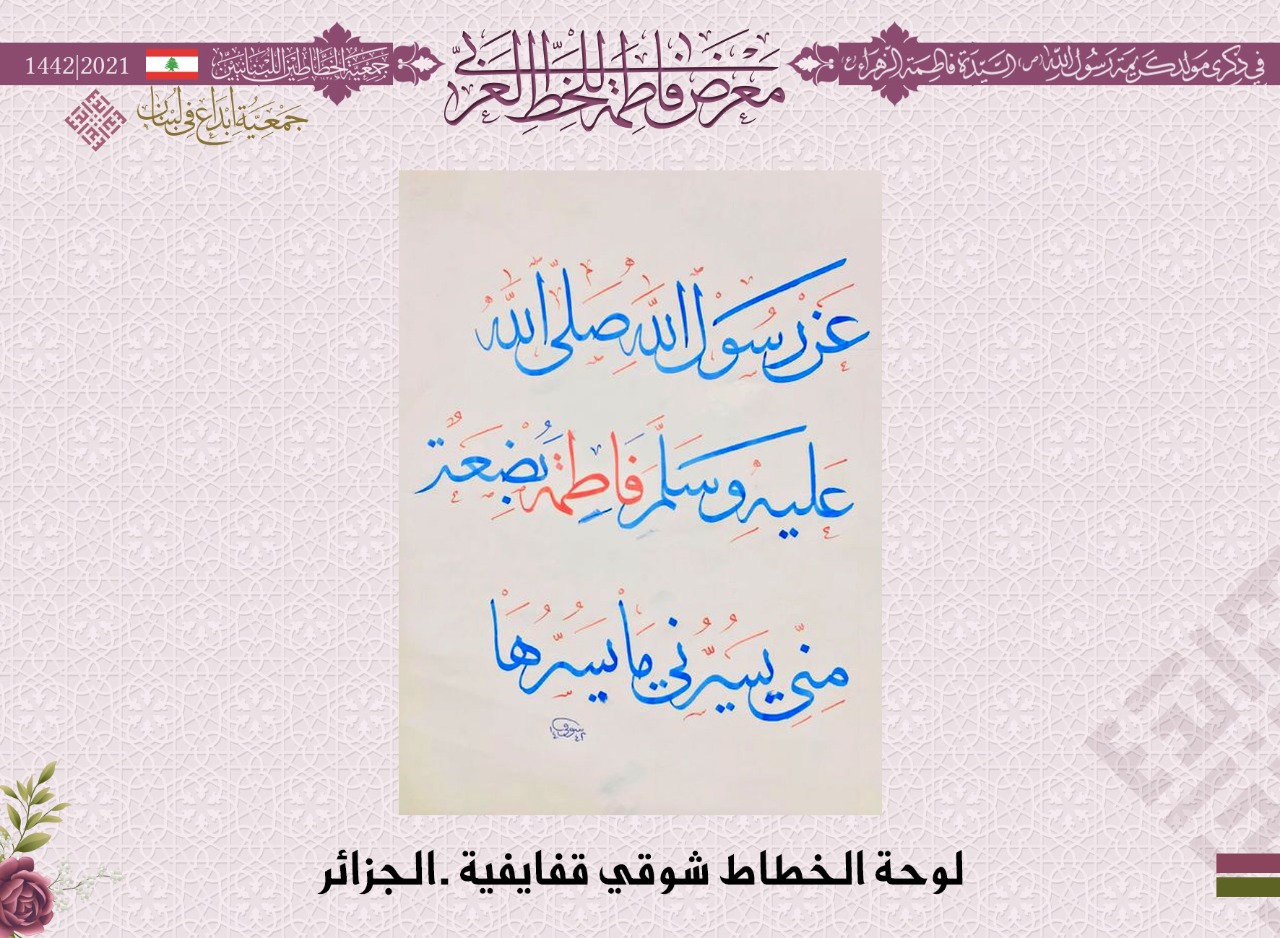 في ذكرى مولد كريمة رسول الله (ص) السيدة فاطمة الزهراء (ع)
معرض فاطمة للخط العربي
جمعية الخطاطين اللبنانيين
1442|2021
جمعية إبداع في لبنان
عَن رَسُول اللَّه صَلى اللَّه
عَليهِ وَسَلَّم فَاطِمَة بَضعَةٌ
مِنِّي يَسُرُّني مَا يَسُرُّهَا
لوحة الخطاط شوقي قفايفية .الجزائر